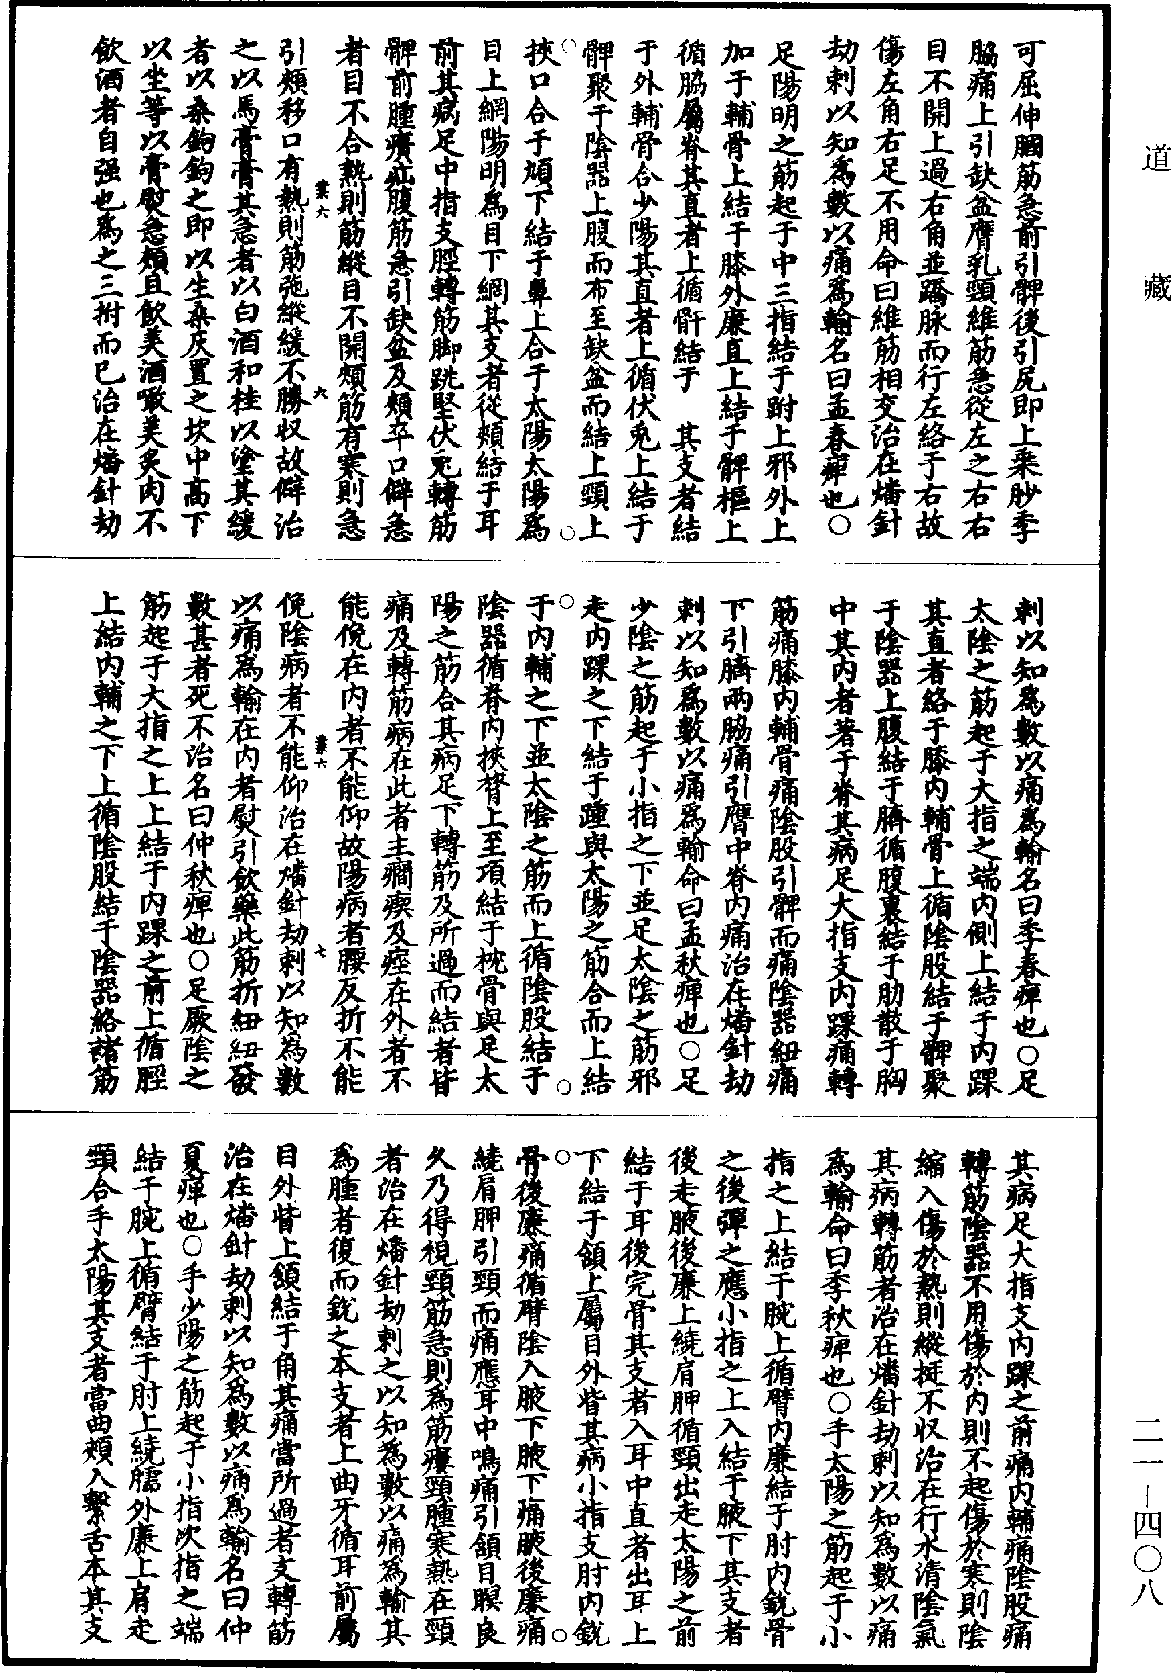 道藏
可屈伸膕筋急前引髀後引尻即上乗眇季
脇痛上引缺盆膺乳頸維筋急從左之右右
目不開上過右角並蹻脉而行左絡于右故
傷左角右足不用命曰維筋相交治在燔針
劫刺以知為數以痛為輸名曰孟春痺也○
足陽明之筋起于中三指結于跗上邪外上
加于輔骨上結于膝外廉直上結于髀樞上
循脇屬脊其直者上循骭結于　其支者結
于外輔骨合少陽其直者上循伏兎上結于
髀聚于陰器上腹而布至缺盆而結上頸上
挾口合于頄下結于鼻上合于太陽太陽為
目上綱陽明為目下綱其支者從頰結于耳
前其病足中指支脛轉筋脚跳堅伏兎轉筋
髀前腫㿉疝腹筋急引缺盆及頰卒口僻急
者目不合熱則筋縱目不開頰筋有寒則急
業六　六
引頰移口有熱則筋弛縱緩不勝収故僻治
之以馬膏膏其急者以白酒和桂以塗其緩
者以桑鉤鉤之即以生桑灰置之坎中高下
以坐等以膏熨急頰且飲美酒噉美炙肉不
飲酒者自强也為之三拊而已治在燔針劫
刺以知為數以痛為輸名曰季春痺也○足
太陰之筋起于大指之端内側上結于内踝
其直者絡于膝内輔骨上循陰股結于髀聚
于陰器上腹結于臍循腹裏結于肋散于胸
中其内者著于脊其病足大指支内踝痛轉
筋痛膝内輔骨痛陰股引髀而痛陰器紐痛
下引臍兩脇痛引膺中脊内痛治在燔針劫
刺以知為數以痛為輸命曰孟秋痺也○足
少陰之筋起于小指之下並足太陰之筋邪
走内踝之下結于踵與太陽之筋合而上結
于内輔之下並太陰之筋而上循陰股結于
陰器循脊内挾膂上至項結于枕骨與足太
陽之筋合其病足下轉筋及所過而結者皆
痛及轉筋病在此者主癇瘈及痙在外者不
能俛在内者不能仰故陽病者腰反折不能
業六　七
俛陰病者不能仰治在燔針劫刺以知為數
以痛為輸在内者熨引飲藥此筋折紐紐發
數甚者死不治名曰仲秋痺也○足厥陰之
筋起于大指之上上結于内踝之前上循脛
上結内輔之下上循陰股結于陰器絡諸筋
其病足大指支内踝之前痛内輔痛陰股痛
轉筋陰器不用傷於内則不起傷於寒則陰
縮入傷於熱則縱挺不収治在行水清陰氣
其病轉筋者治在燔針劫刺以知為數以痛
為輸命曰季秋痺也○手太陽之筋起于小
指之上結于腕上循臂内廉結于肘内銳骨
之後彈之應小指之上入結于腋下其支者
後走腋後廉上繞肩胛循頸出走太陽之前
結于耳後完骨其支者入耳中直者出耳上
下結于頷上屬目外眥其病小指支肘内銳
骨後廉痛循臂陰入腋下腋下痛腋後廉痛
繞肩胛引頸而痛應耳中鳴痛引頷目瞑良
久乃得視頸筋急則為筋瘻頸腫寒熱在頸
者治在燔針劫刺之以知為數以痛為輸其
為腫者復而銳之本支者上曲牙循耳前屬
目外眥上頷結于角其痛當所過者支轉筋
治在燔針劫刺以知為數以痛為輸名曰仲
夏痺也○手少陽之筋起于小指次指之端
結于腕上循臂結于肘上繞臑外廉上肩走
頸合手太陽其支者當曲頰入繫舌本其支
二一—四〇八